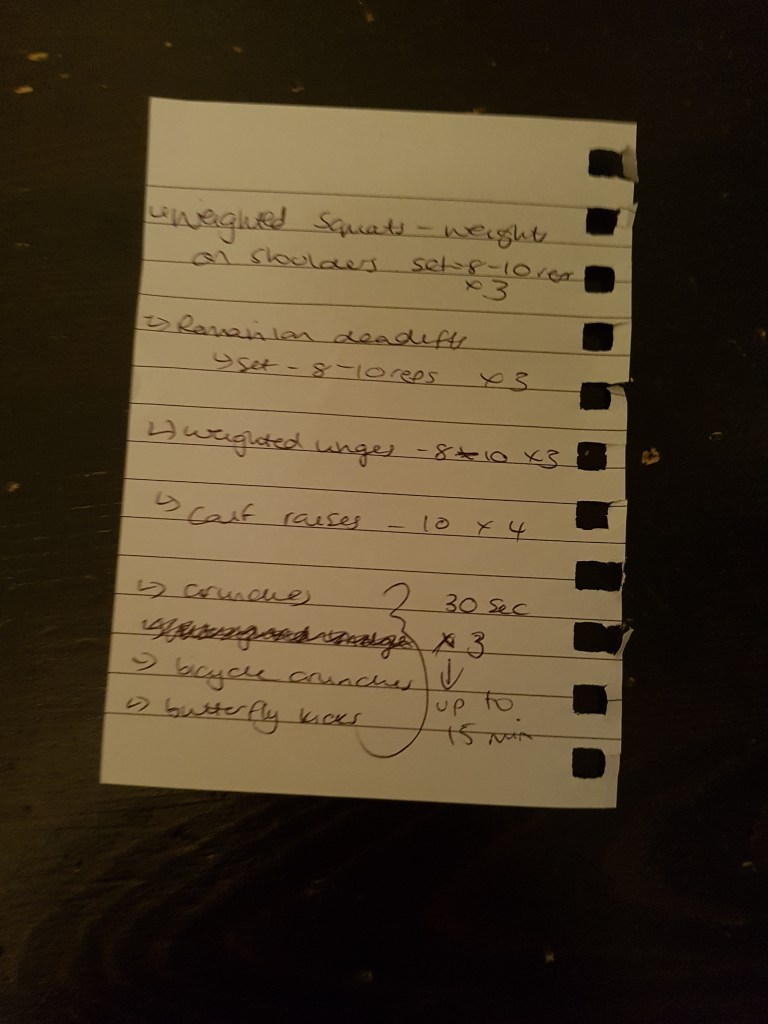 ↳ Weighted squats - weights
on shoulders set=8-10 rep
x3
↳ Romanian deadlifts
↳ set - 8-10 reps x3
↳ weighted lunges - 8-10 x3
↳ Calf raises - 10 x 4
↳ crunches } 30 sec
x 3
↳ bicycle crunches ↓
up to
↳ butterfly kicks
15 min